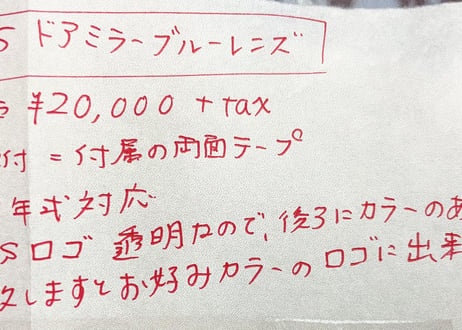 S ドアミラーブルーレンズ
¥20,000 + tax
付 = 付属の両面テープ
年式対応
Sロゴ 透明なので、後ろにカラーのあ
致しますとお好みカラーのロゴに出来